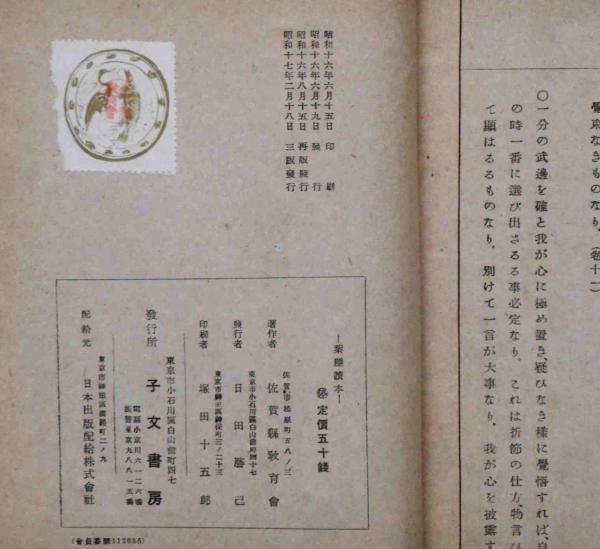 覺束なきものなり。(卷十一)
〇一分の武邊を確と我が心に極め置き、疑ひなき樣に覺悟すれば、自
の時一番に選び出さるる事必定なり。これは折節の仕方、物言ひ
て顯はるるものなり。別けて一言が大事なり。我が心を披露す
昭和十六年六月十五日 印刷
昭和十六年六月十九日 發行
昭和十六年八月十五日 再版發行
昭和十七年二月十八日 三版發行
―葉隱讀本―
定價五十錢
佐賀市松原町五八ノ三
著作者 佐賀縣敎育會
東京市小石川區白山前町四十七
發行者 日田勝己
東京市神田區神保町三ノ二十三
印刷者 塚田十五郎
東京市小石川區白山前町四七
發行所 子文書房
電話小石川六一二六番
振替東京九八八一五番
東京市神田區淡路町二ノ九
配給元 日本出版配給株式會社
(會員番號112035)